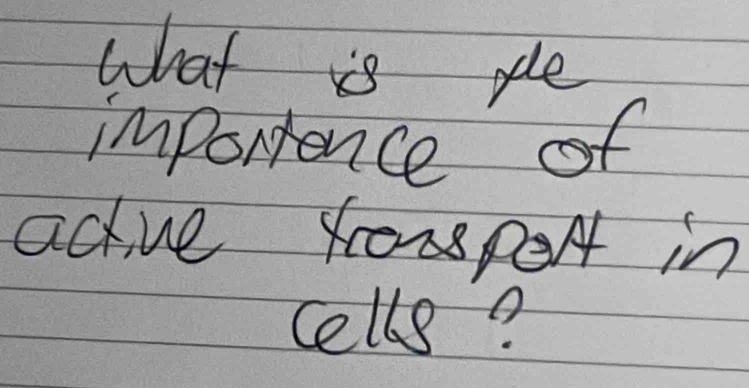 What is the
importance of
active transport in
cells?